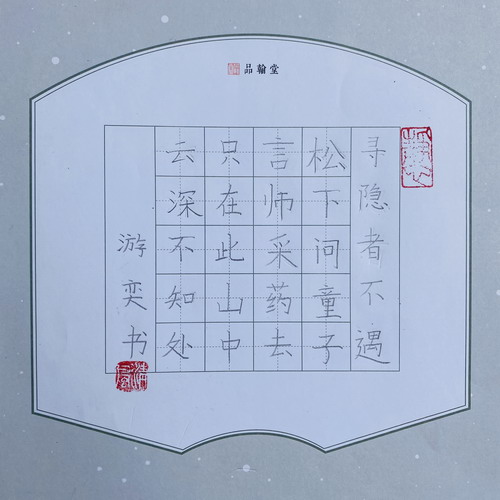 品翰堂
寻隐者不遇
松下问童子
言师采药去
只在此山中
云深不知处
游奕书